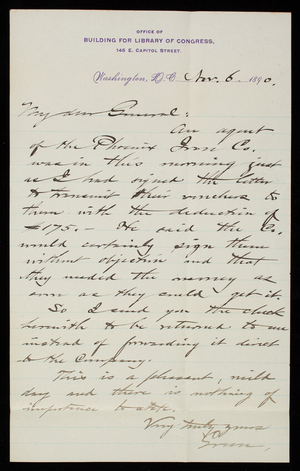 OFFICE OF
BUILDING FOR LIBRARY OF CONGRESS,
145 E. CAPITOL STREET.
Washington, D.C. Nov. 6. 1890.
My dear General:
An agent
of the Phoenix Iron Co.
was in this morning just
as I had signed the letter
to transmit their vouchers to
them with the deduction of
$175.- He said the Co.
would certainly sign them
without objection and that
they needed the money as
soon as they could get it.
So I send you the check
herewith to be returned to me
instead of forwarding it direct
to the Company.
This is a pleasant, mild
day and there is nothing of
importance to state.
Very truly yours
Green.